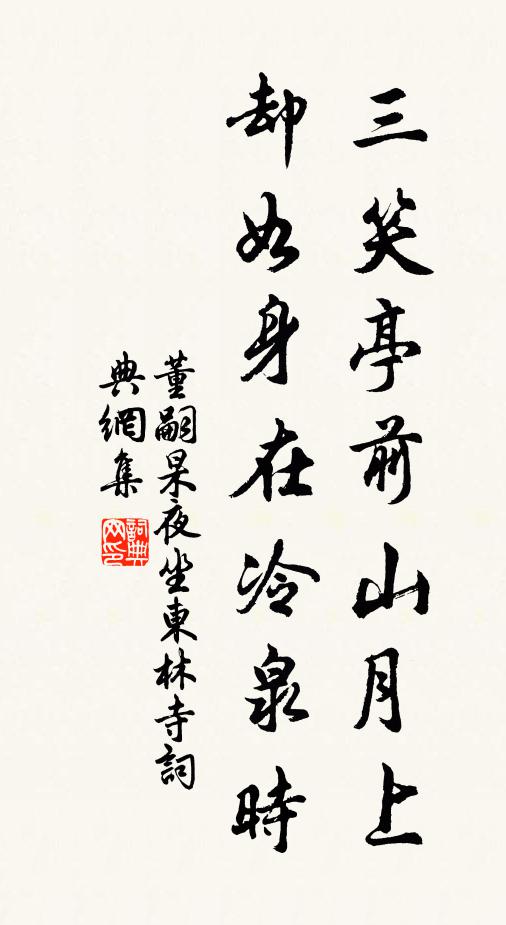 三笑亭前山月上
却如身在冷泉時
董嗣杲夜坐東林寺詞
典網集
詞典网印